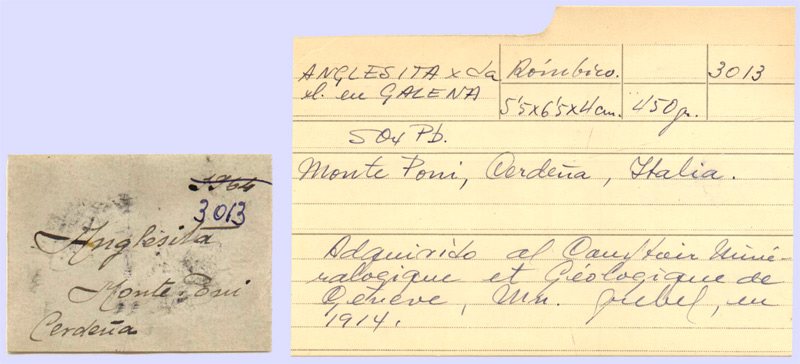 1964
3013
Anglesita
Monte Poni
Cerdeña
ANGLESITA x da
xl. en GALENA
Rómbico.
3013
5'5x6'5x4 cm.
450 gr.
SO4 Pb.
Monte Poni, Cerdeña, Italia.
Adquirido al Comptoir Miné-
ralogique et Géologique de
Génève, Mn. Grebel, en
1914.